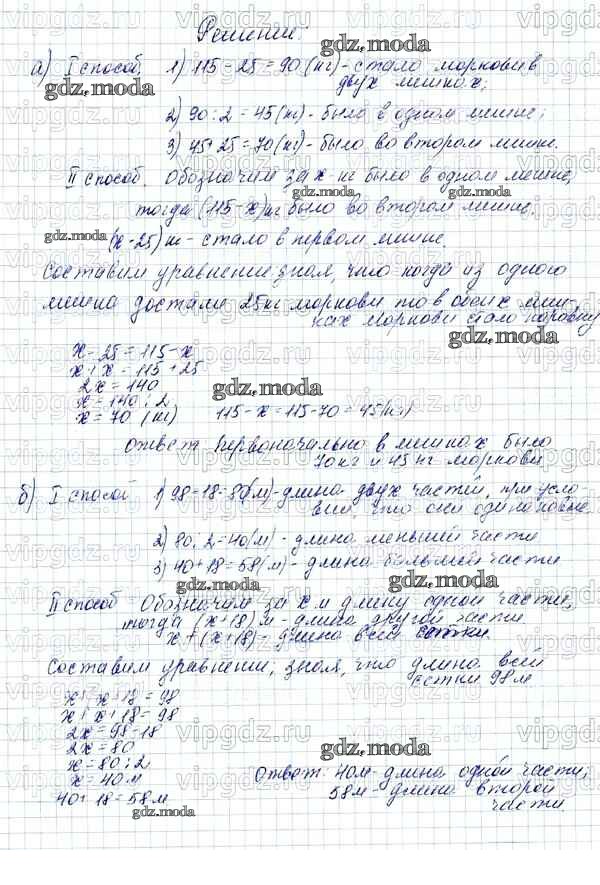 Решение:
а) I способ 1) 115-25=90(кг)-стало моркови в
двух мешках;
2) 90:2=45(кг)-было в одном мешке;
3) 45+25=70(кг)-было во втором мешке.
II способ. Обозначим за х кг было в одном мешке,
тогда (115-х)кг было во втором мешке,
(х-25) кг-стало в первом мешке.
Составим уравнение зная, что когда из одного
мешка достали 25кг моркови то в обоих меш-
ках моркови стало поровну
х-25=115-х
х+х=115+25
2х=140
х=140:2
х=70 (кг) 115-х=115-70=45(кг)
Ответ: Первоначально в мешках было
70кг и 45кг моркови
б) I способ 1) 98-18=80(м)-длина двух частей, при усло-
вии, что они одинаковые
2) 80:2=40(м)-длина меньшей части
3) 40+18=58(м)-длина большей части
II способ Обозначим за х м длину одной части,
тогда (х+18)м-длина другой части
х+(х+18)-длина всей сетки.
Составим уравнение, зная, что длина всей
сетки 98м
х+х+18=98
х+х+18=98
2х=98-18
2х=80
х=80:2
х=40м
40+18=58м
Ответ: 40м-длина одной части;
58м-длина второй
части.
gdz.moda
vipgdz.ru